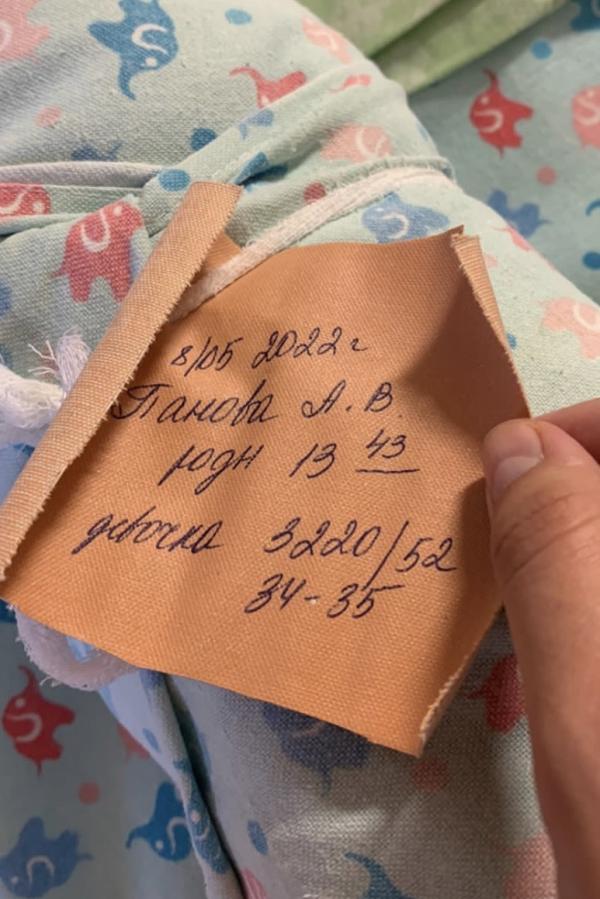 8/05 2022 г
Панова А. В.
родн 13 43
девочка 3220/52
34-35